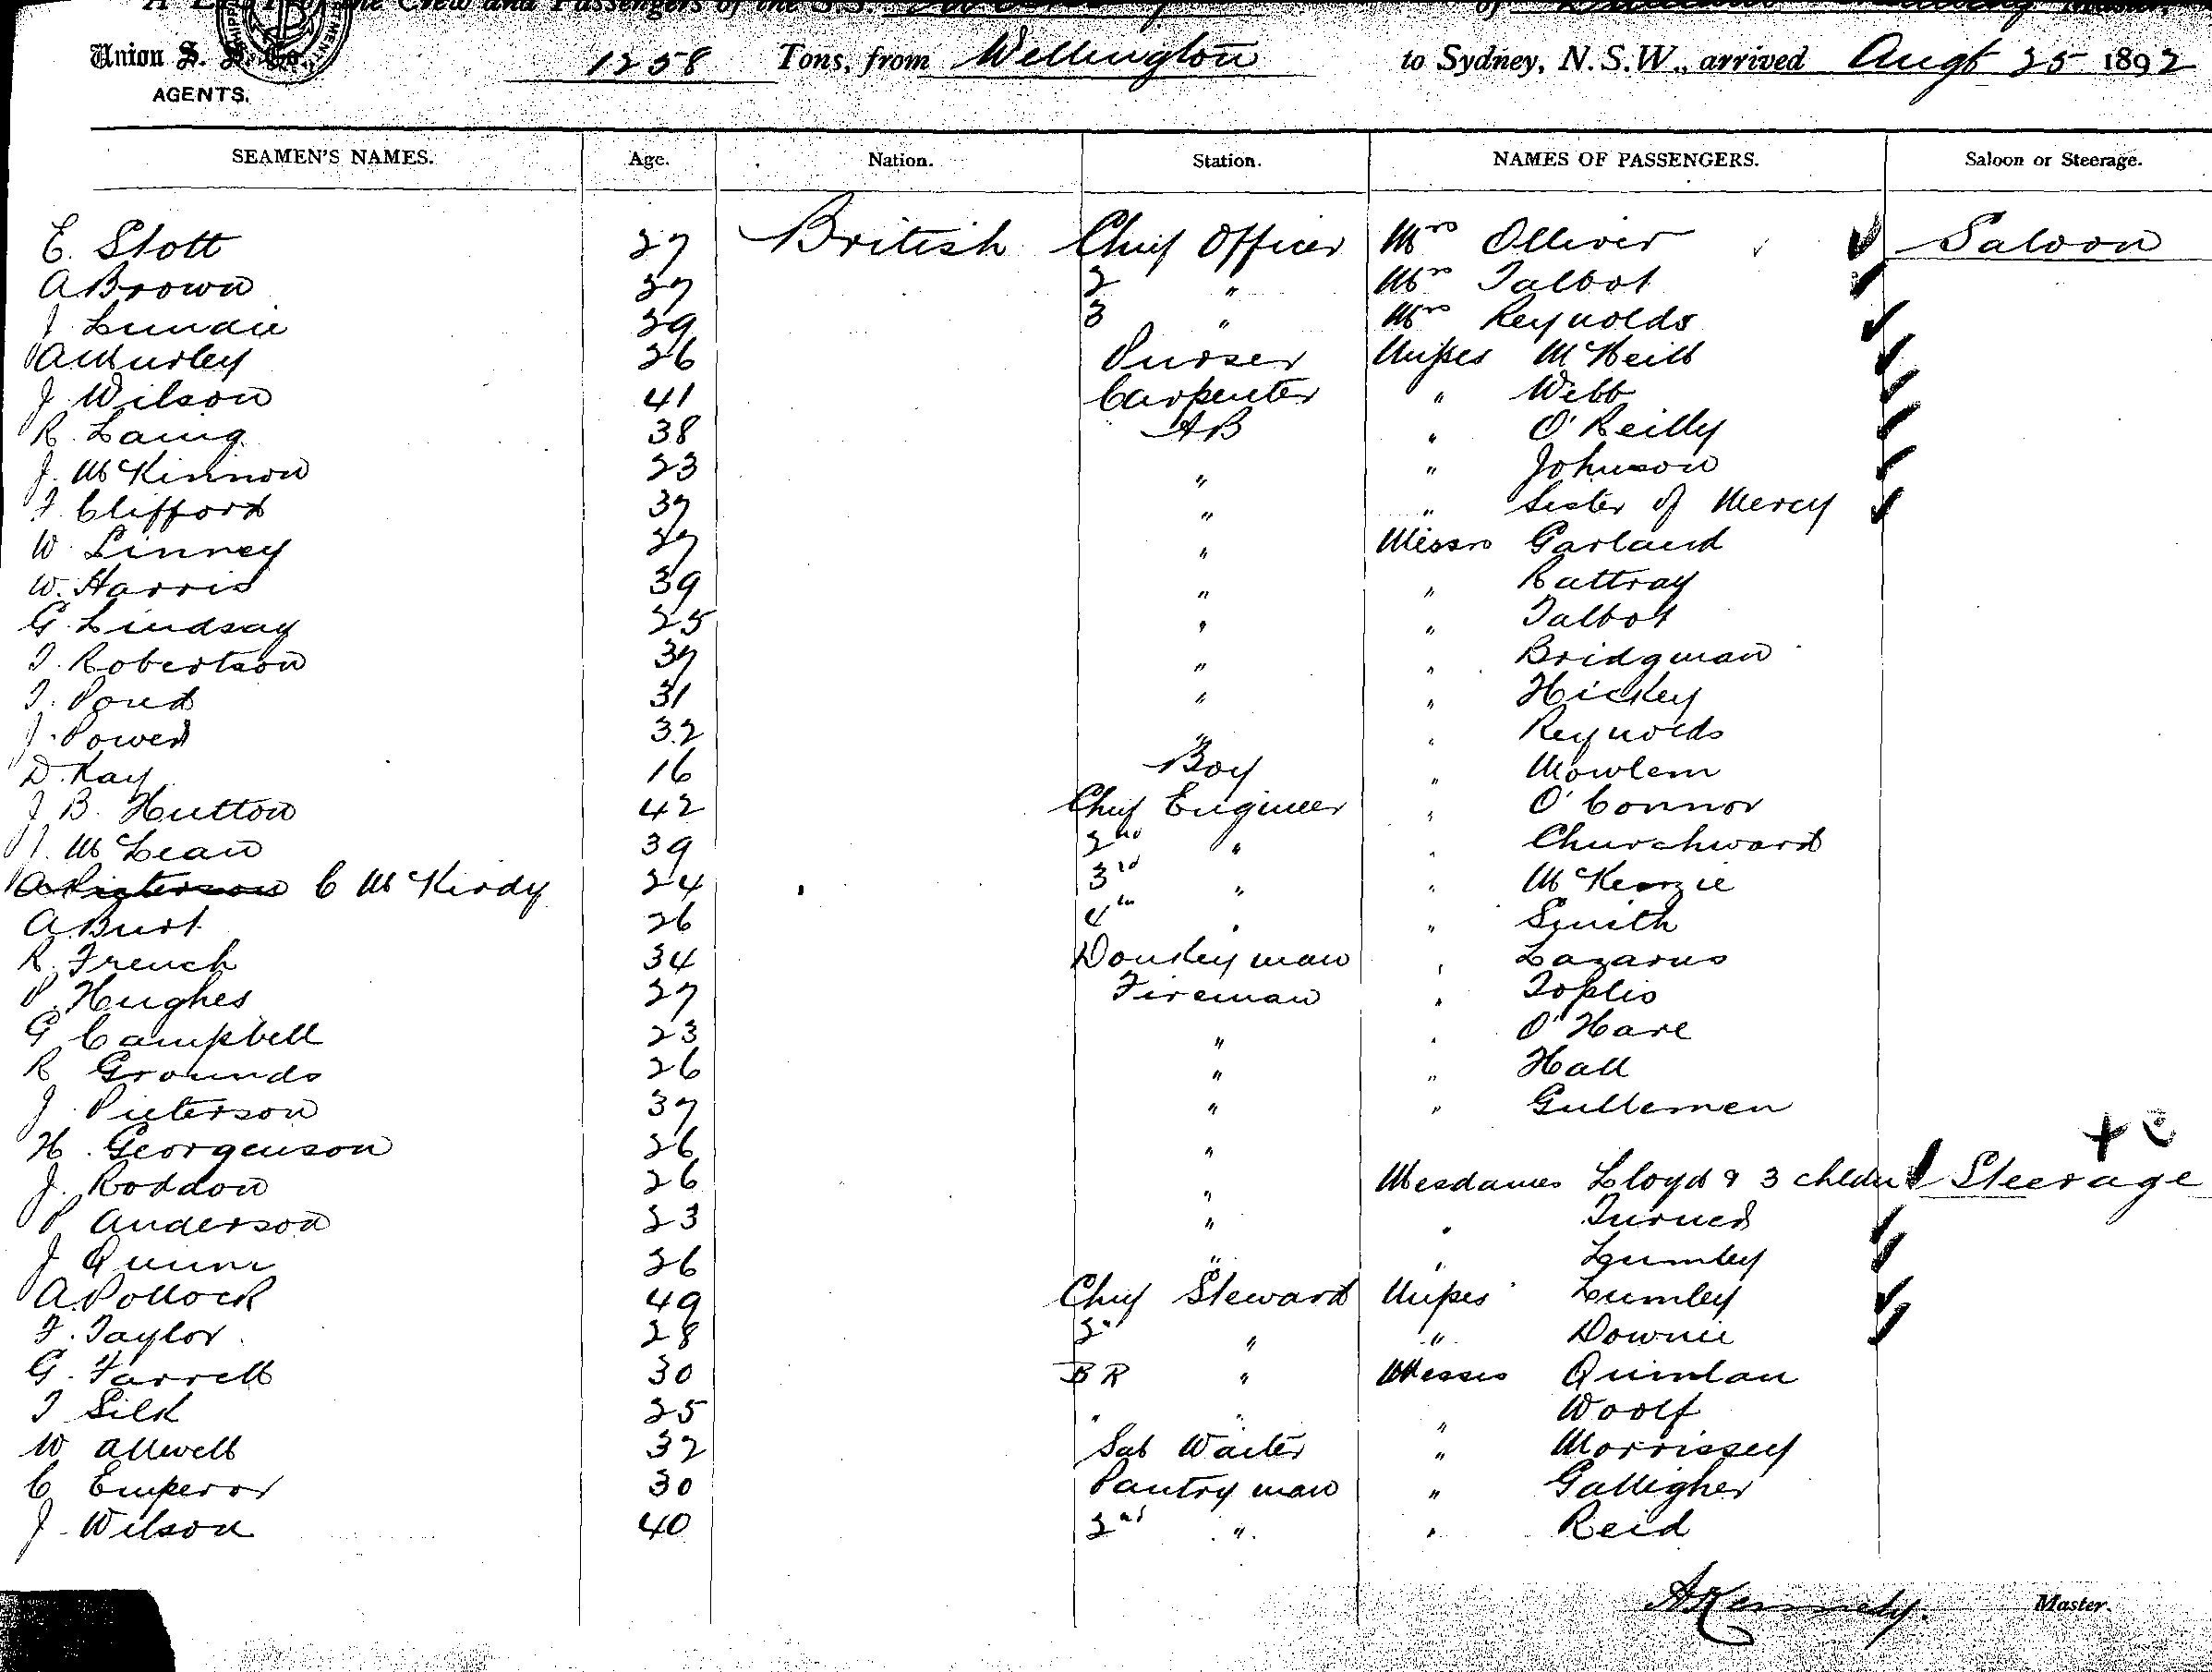 A List of the Crew and Passengers of the S.S. of Master,
Union S. S. Co. 1258 Tons, from Wellington to Sydney, N.S.W., arrived Augt 25 1892
AGENTS.
SEAMEN'S NAMES. Age. Nation. Station. NAMES OF PASSENGERS. Saloon or Steerage.
E. Stott 27 British Chief Officer Mrs Olliver Saloon
A Brown 37 2 " Mrs Talbot
J Lundie 39 3 " Mrs Reynolds
A Hurley 26 Purser Misses McNeill
J Wilson 41 Carpenter " Webb
R. Laing 38 AB " O'Reilly
J. McKinnon 23 " " Johnson
F. Clifford 37 " " Sister of Mercy
W. Linney 27 " Messrs Garland
W. Harris 39 " " Rattray
G. Lindsay 25 " " Talbot
T. Robertson 37 " " Bridgman
T. Pond 31 " " Hickey
J. Power 32 " " Reynolds
D. Kay 16 Boy " Mowlem
J B. Hutton 42 Chief Engineer " O'Connor
J. McLean 39 2nd " " Churchward
A Pieterson C McKirdy 24 3rd " " McKenzie
A Burt 26 4th " " Smith
R. French 34 Donkeyman " Lazarus
P. Hughes 27 Fireman " Toplis
G Campbell 23 " " O'Hare
R Grounds 26 " " Hall
J. Pieterson 37 " " Gullemen
H. Georgenson 26 "
J. Roddon 26 " Mesdames Lloyd & 3 chldn Steerage
P Anderson 23 " " Turner
J Quinn 26 " " Lumley
A. Pollock 49 Chief Steward Misses Lumley
F. Taylor 28 2nd " " Downie
G. Farrell 30 BR " Messrs Quinlan
T Silk 25 " " " Woolf
W Allwell 32 Sal Waiter " Morrissey
C Emperor 30 Pantryman " Galligher
J. Wilson 40 2nd " " Reid
A Kennedy. Master.